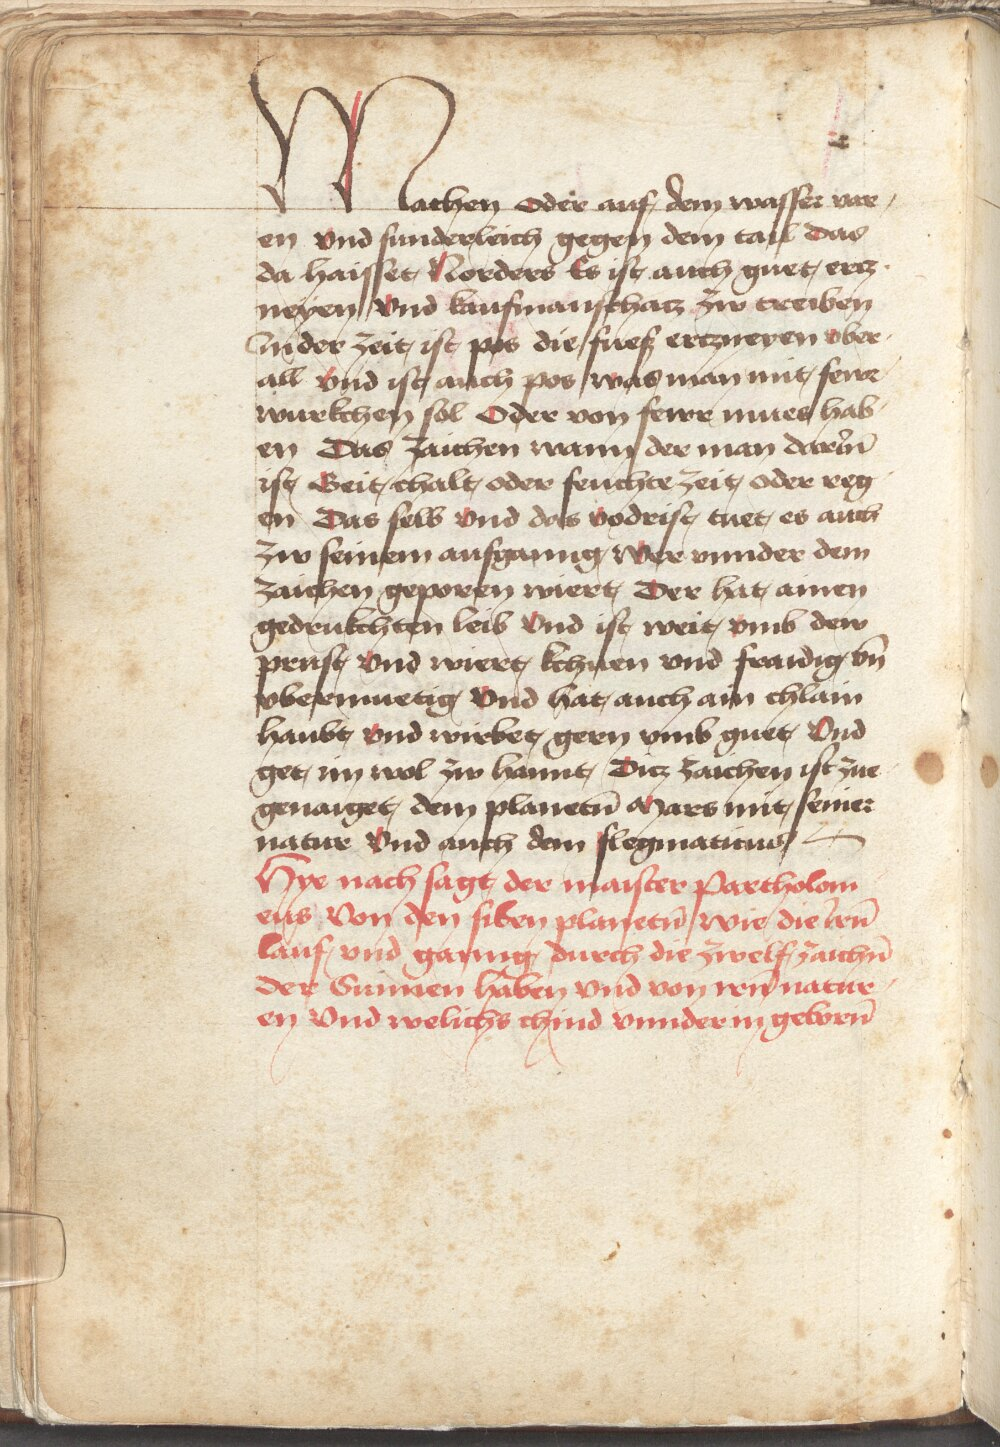 Machen Oder auf dem wasser var
en Vnd sunderleich gegen dem tail Das
da haisset Norders Es ist auch guet ertz
neyen Vnd kaufmanschatz zw treiben
In der zeit ist pos die fuess ertzneyen vber
all Vnd ist auch pos was man mit fewr
wurkchen sol Oder von fewr mues hab
en Das zaichen wann der man darin̄
ist Geit chalt oder feuchte zeit oder reg
en Das selb Vnd das vodrist tuet es auch
zw seinem aufganng Wer vnnder dem
zaichen geporen wiert Der hat ainen
gedrukchten leib Vnd ist weit vmb dew
prust Vnd wiert kchuen vnd fraidig vn̄
vbermuetig Vnd hat auch ain chlain
haubt Vnd wirbet gern vmb guet Vnd
get im wol zw hannt Ditz zaichen ist zue
genaiget dem planetn̄ Mars mit seiner
natur Vnd auch dem flegmaticus
Hye nach sagt der maister Partholom
eus Von den siben planetn̄ wie die irn̄
lauf vnd ganng durch die zwelf zaichn̄
der Sunnen haben Vnd von irn̄ natur
en Vnd welichs chind vnnder in geborn̄